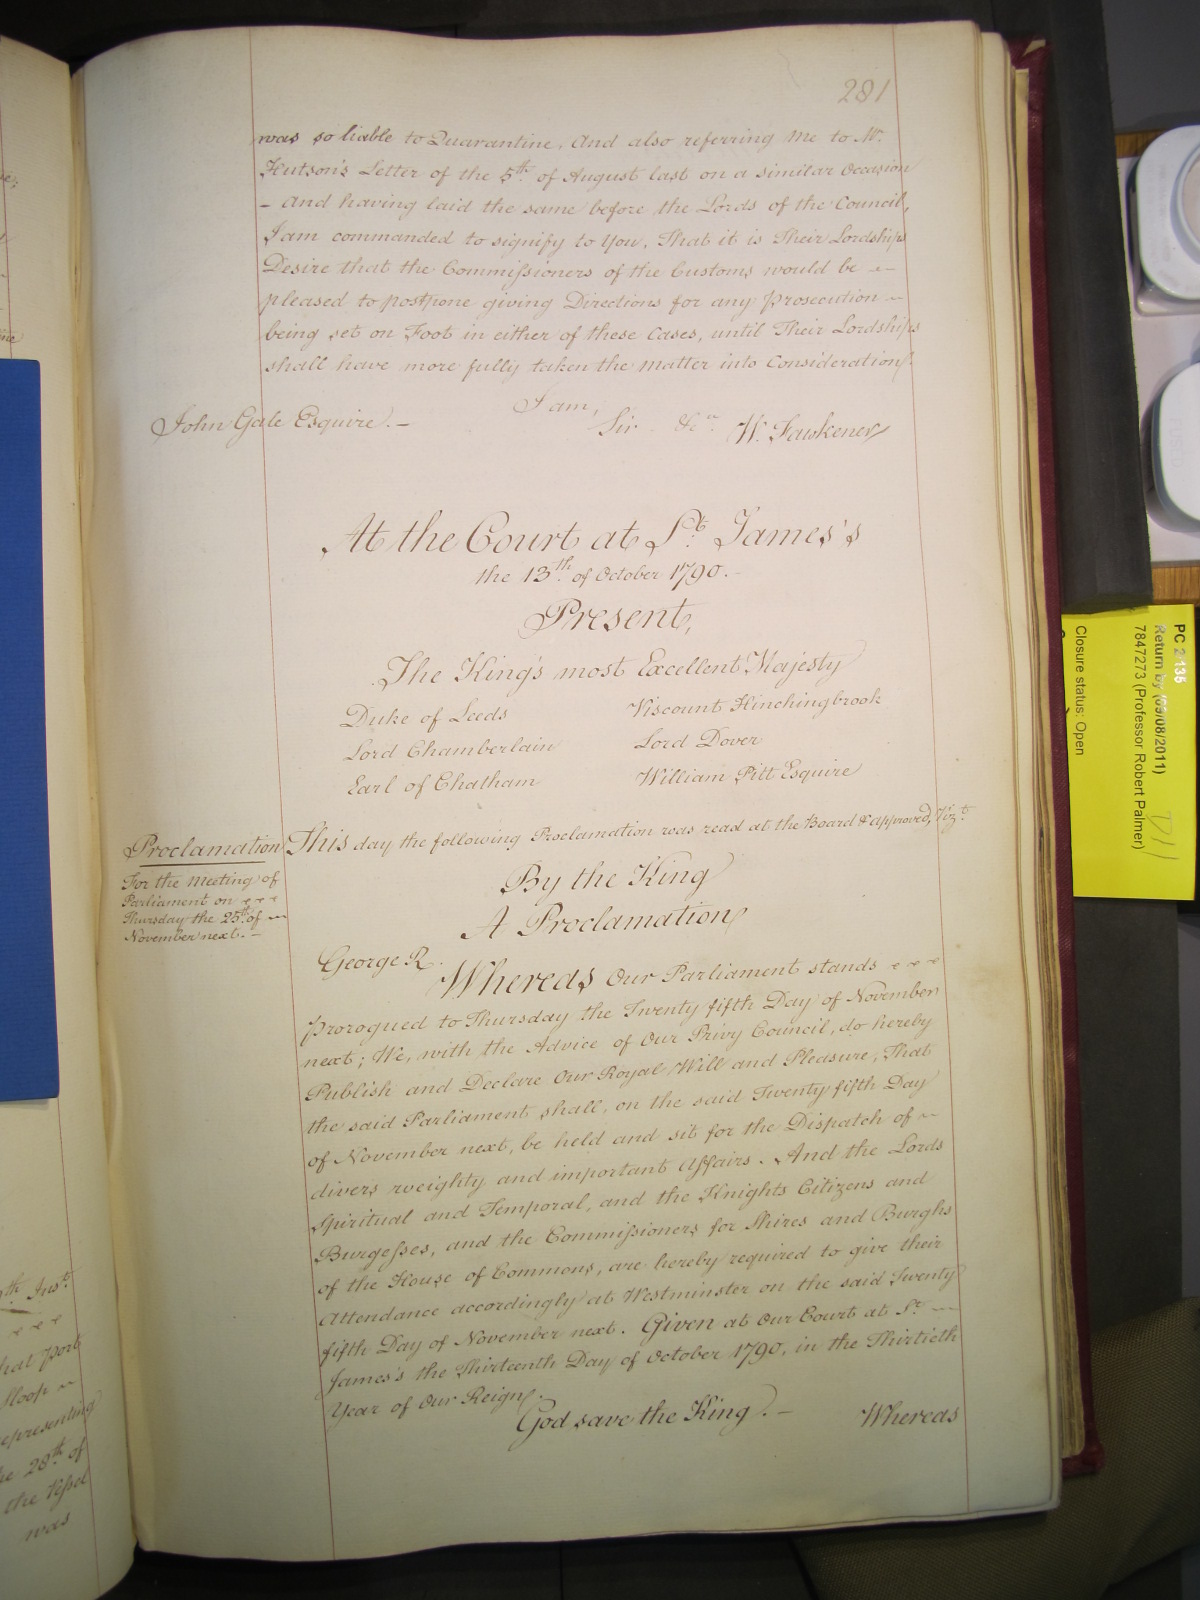 281
was so liable to Quarantine, And also referring me to Mr.
Hutson's Letter of the 5th. of August last on a similar Occasion
- And having laid the same before the Lords of the Council,
I am commanded to signify to You, That it is Their Lordships
Desire that the Commissioners of the Customs would be
pleased to postpone giving Directions for any Prosecution
being set on Foot in either of these Cases, until Their Lordships
shall have more fully taken the Matter into Consideration.
I am,
John Gale Esquire. -
Sir &ca W. Fawkener
At the Court at St. James's
the 13th. of October 1790. -
Present,
The King's most Excellent Majesty
Duke of Leeds Viscount Hinchingbrook
Lord Chamberlain Lord Dover
Earl of Chatham William Pitt Esquire
Proclamation
For the Meeting of
Parliament on
Thursday the 25th. of
November next. -
This day the following Proclamation was read at the Board & approved, Vizt.
By the King
A Proclamation
George R.
Whereas Our Parliament stands
prorogued to Thursday the Twenty fifth Day of November
next; We, with the Advice of Our Privy Council, do hereby
Publish and Declare Our Royal Will and Pleasure, That
the said Parliament shall, on the said Twenty fifth Day
of November next, be held and sit for the Dispatch of
divers weighty and important Affairs. And the Lords
Spiritual and Temporal, and the Knights Citizens and
Burgesses, and the Commissioners for Shires and Burghs
of the House of Commons, are hereby required to give their
Attendance accordingly at Westminster on the said Twenty
fifth Day of November next. Given at Our Court at St.
James's the Thirteenth Day of October 1790, in the Thirtieth
Year of Our Reign.
God save the King. -
Whereas
PC 2/135
Return by (09/08/2011)
7847273 (Professor Robert Palmer)
Closure status: Open
D11
th Inst.
hat Port
Sloop
epresenting
he 28th. of
the Vessel
was